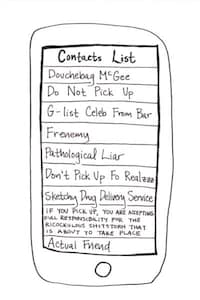 Contacts List
Douchebag McGee
Do Not Pick Up
G-list Celeb From Bar
Frenemy
Pathological Liar
Don't Pick Up Fo Realzzz
Sketchy Drug Delivery Service
IF YOU PICK UP, YOU ARE ACCEPTING
FULL RESPONSIBILITY FOR THE
RICOCKULOUS SHITSTORM THAT
IS ABOUT TO TAKE PLACE
Actual Friend